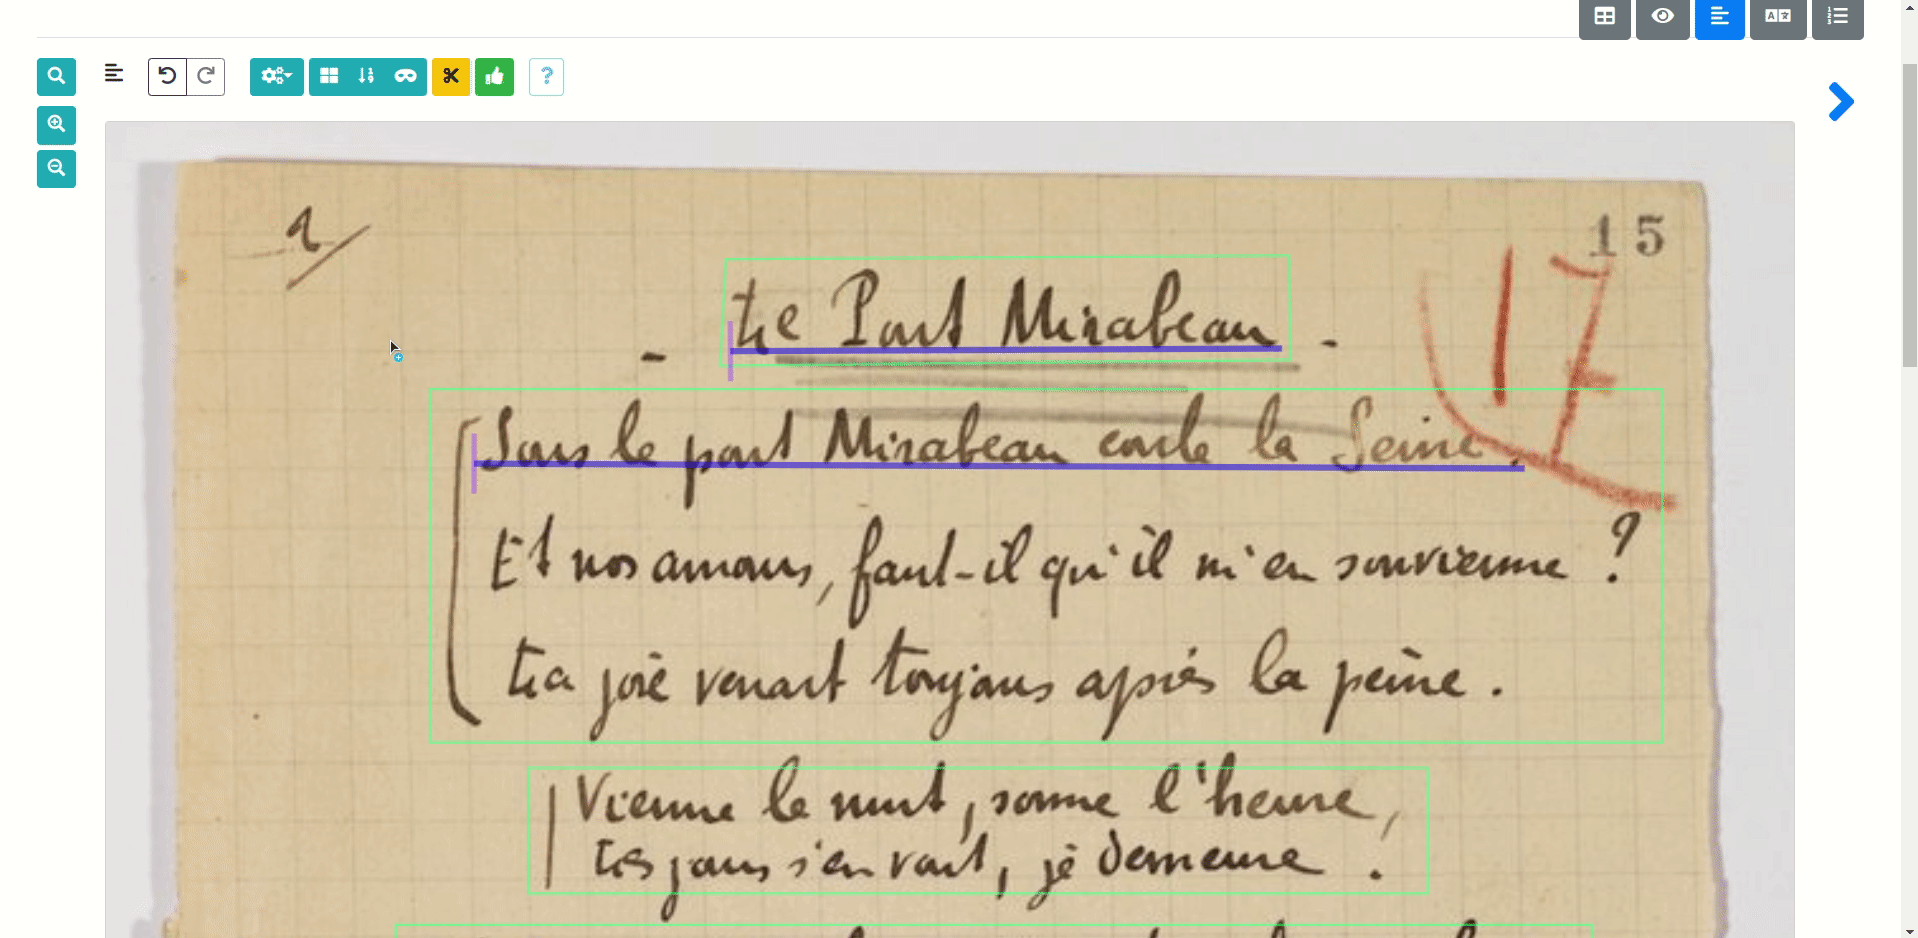 1/
15
17
- Le Pont Mirabeau -
Sous le pont Mirabeau coule la Seine.
Et nos amours, faut-il qu'il m'en souvienne ?
La joie venait toujours après la peine.
Vienne la nuit, sonne l'heure,
Les jours s'en vont, je demeure.